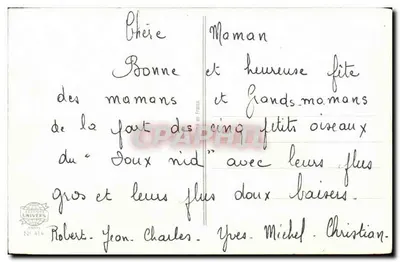 Chère Maman
Bonne et heureuse fête
des mamans et Grands-mamans
de la part des cinq petits oiseaux
du "Doux nid" avec leurs plus
gros et leurs plus doux baisers.
Robert - Jean - Charles - Yves - Michel - Christian -